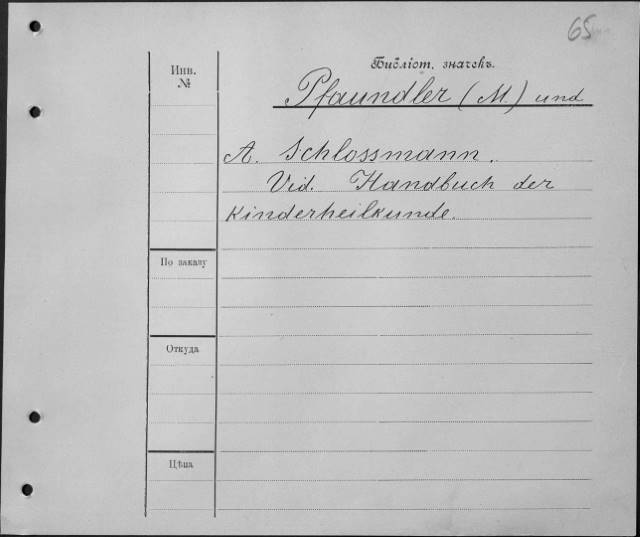 65
Библіот. значекъ.
Инв. №
Pfaundler (M.) und
A. Schlossmann.
Vid. Handbuch der
Kinderheilkunde.
По заказу
Откуда
Цѣна